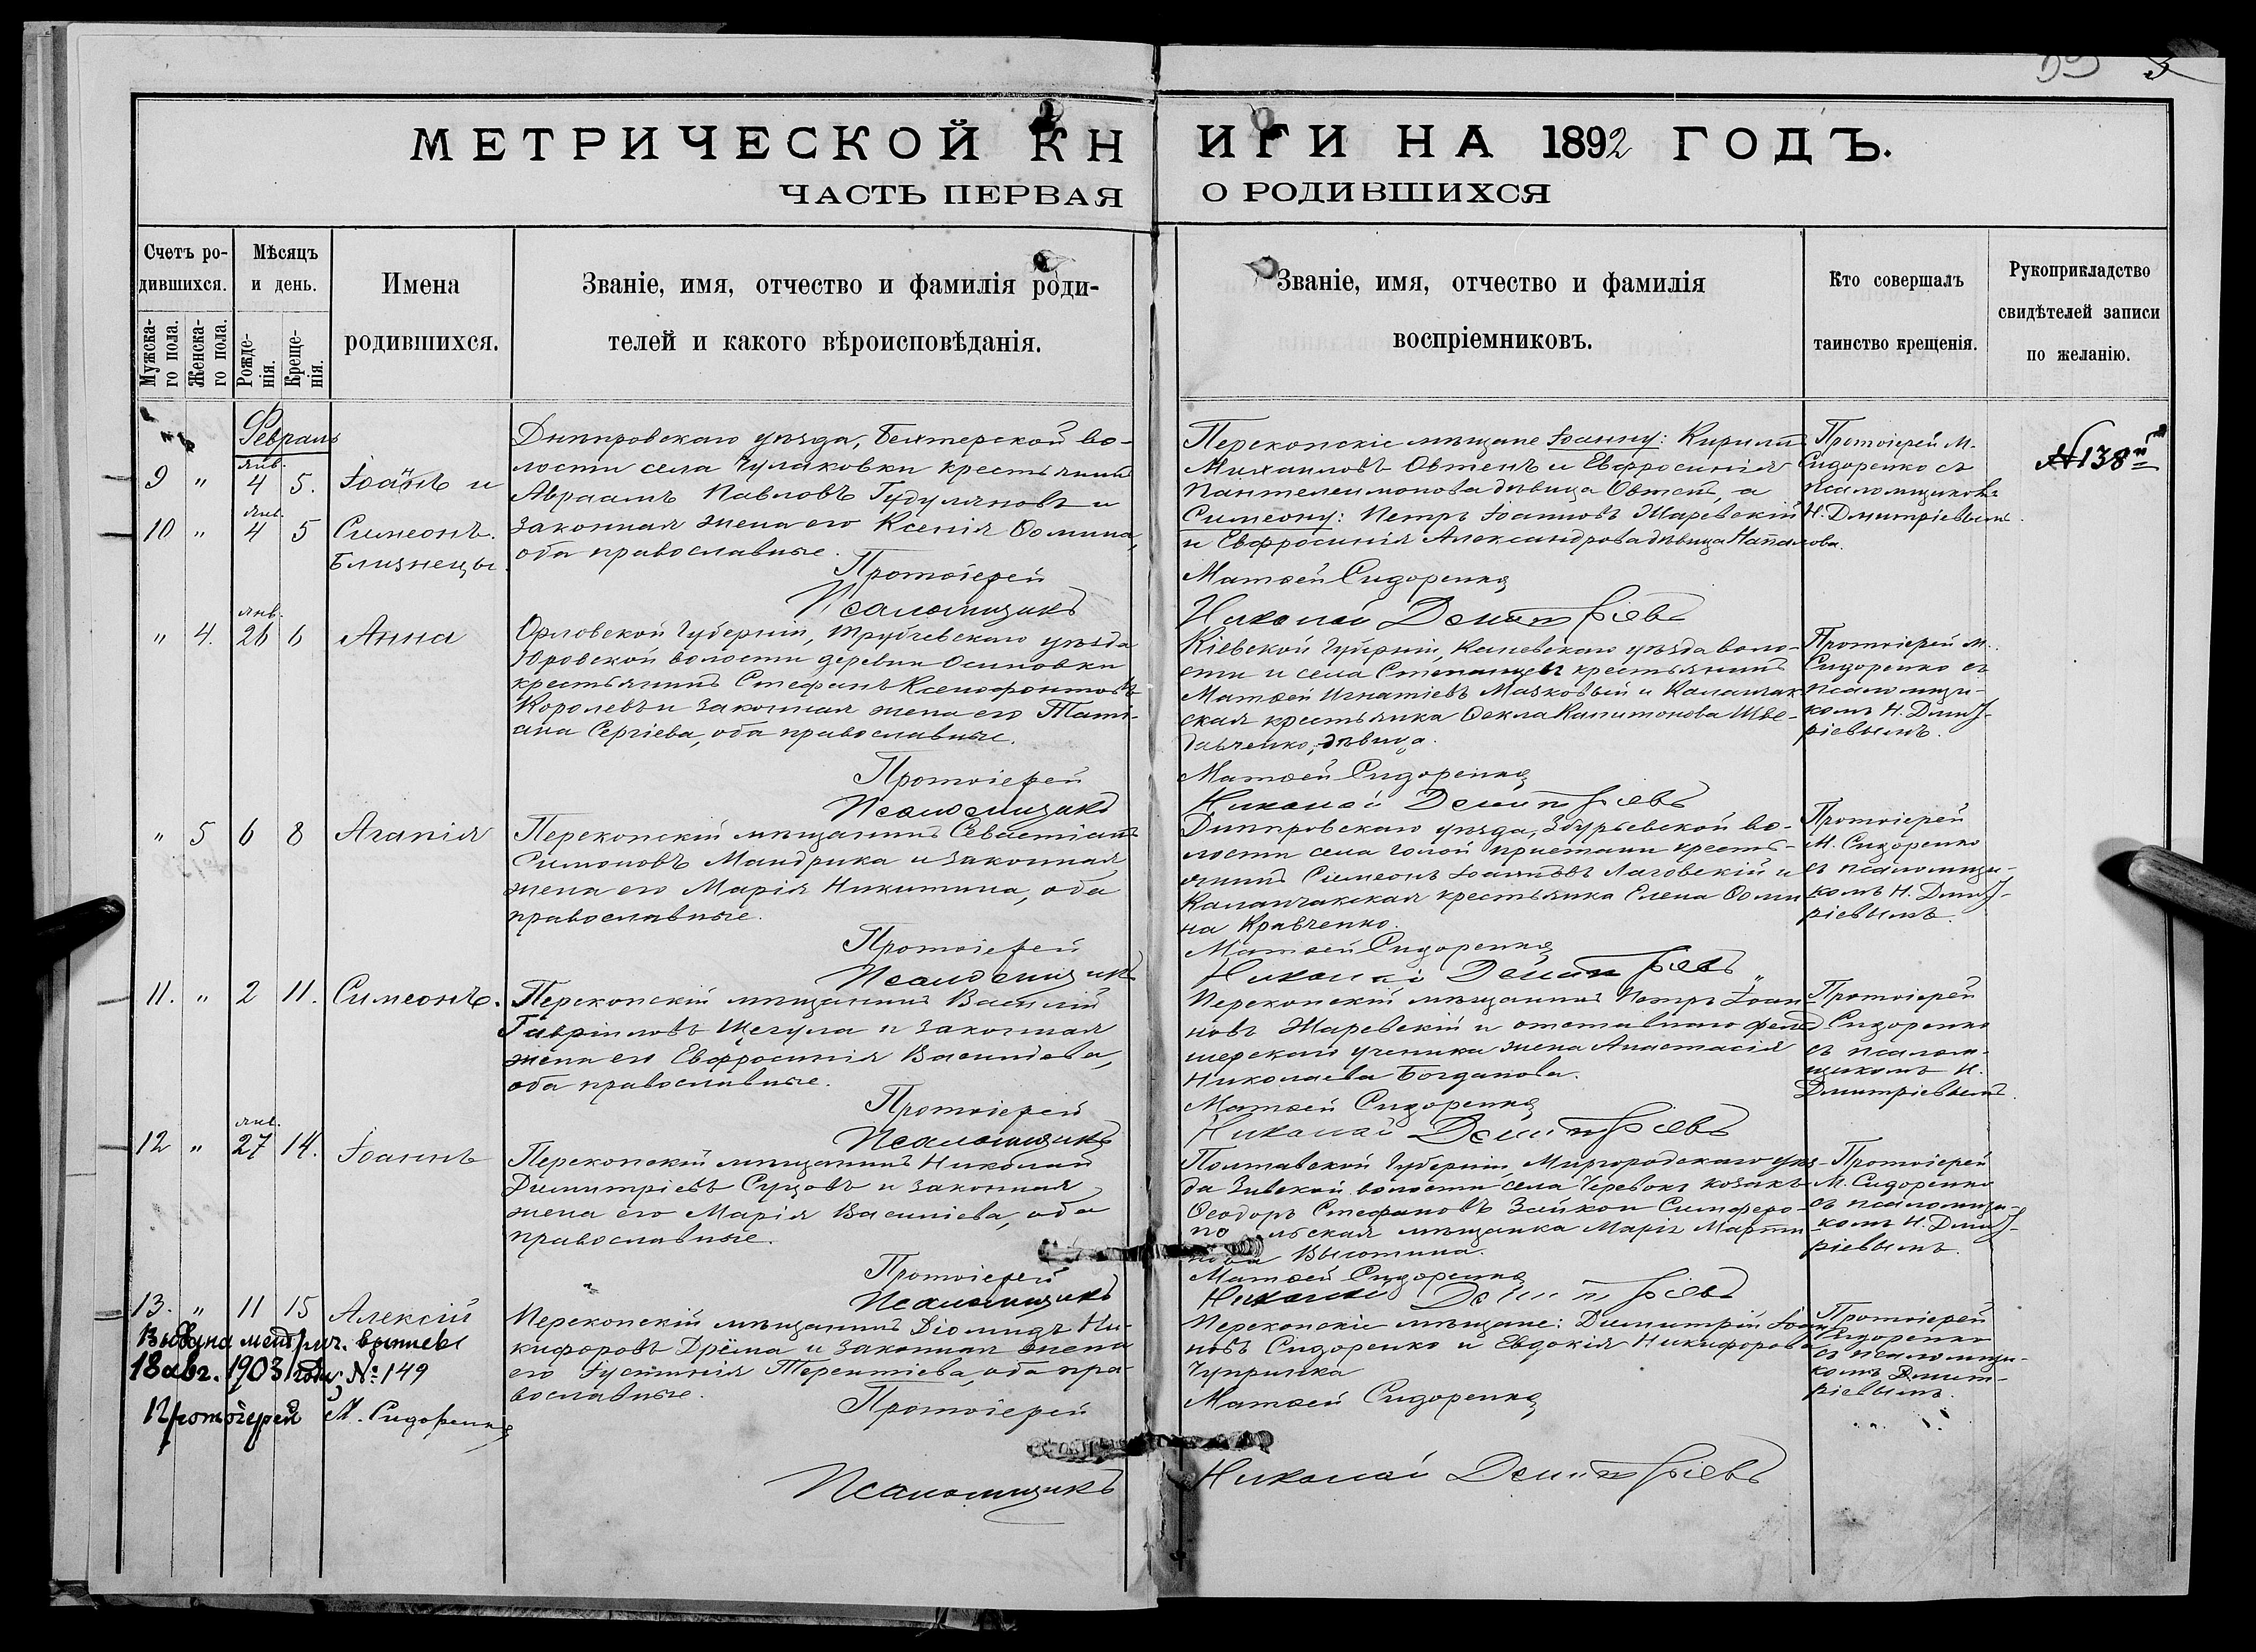 МЕТРИЧЕСКОЙ КНИГИ НА 1892 ГОДЪ.
ЧАСТЬ ПЕРВАЯ О РОДИВШИХСЯ
Счетъ ро-
дившихся.
Мужска-
го пола.
Женска-
го пола.
Мѣсяцъ
и день.
Рожде-
нія.
Креще-
нія.
Имена
родившихся.
Званіе, имя, отчество и фамилія роди-
телей и какого вѣроисповѣданія.
Званіе, имя, отчество и фамилія
воспріемниковъ.
Кто совершалъ
таинство крещенія.
Рукоприкладство
свидѣтелей записи
по желанію.
Февраль
9 " янв. 4 5. Іоаннъ и
10 " янв. 4 5 Симеонъ.
Близнецы.
Днѣпровскаго уѣзда, Бехтерской во-
лости села Чулаковки крестьянинъ
Авраамъ Павловъ Гудуляновъ и
законная жена его Ксенія Ѳомина,
оба православные.
Протоіерей
Псаломщикъ
Перекопскіе мѣщане Іоанну: Кириллъ
Михаиловъ Овтенъ и Евфросинія
Пантелеимонова дѣвица Овтенъ, а
Симеону: Петръ Іоанновъ Жаревскій
и Евфросинія Александрова дѣвица
Матѳей Сидоренко
Николай Димитріевъ
Протоіерей М.
Сидоренко съ
псаломщикомъ
Н. Дмитріевымъ.
№ 138
" 4. янв. 26 6 Анна
Орловской Губерніи, Трубчевскаго уѣзда
Юровской волости деревни Осиновки
крестьянинъ Стефанъ Ксенофонтовъ
Королевъ и законная жена его Тати-
ана Сергіева, оба православные.
Протоіерей
Псаломщикъ
Кіевской Губерніи, Каневскаго уѣзда воло-
сти и села Степанцевъ крестьянинъ
Матѳей Игнатіевъ Мачковый и Каланчак-
ская крестьянка Ѳекла Капитонова Шве-
давченко, дѣвица.
Матѳей Сидоренко
Николай Димитріевъ
Протоіерей М.
Сидоренко съ
псаломщи-
комъ Н. Дмит-
ріевымъ.
" 5 6 8 Агапія
Перекопскій мѣщанинъ Севастіанъ
Симоновъ Мандрика и законная
жена его Марія Никитина, оба
православные.
Протоіерей
Псаломщикъ
Днѣпровскаго уѣзда, Збурьевской во-
лости села Голой пристани кресть-
янинъ Симеонъ Іоанновъ Лаговскій и
Каланчакская крестьянка Елена Ѳоми-
на Кравченко.
Матѳей Сидоренко
Николай Димитріевъ
Протоіерей
М. Сидоренко
съ псаломщи-
комъ Н. Дмит-
ріевымъ.
11. " 2 11. Симеонъ.
Перекопскій мѣщанинъ Василій
Гавріиловъ Щегула и законная
жена его Евфросинія Васильева,
оба православные.
Протоіерей
Псаломщикъ
Перекопскій мѣщанинъ Петръ Іоан-
новъ Жаревскій и отставнаго фельд-
шерскаго ученика жена Анастасія
Николаева Богданова.
Матѳей Сидоренко
Николай Димитріевъ
Протоіерей
Сидоренко
съ псалом-
щикомъ Н.
Дмитріевымъ.
12 " янв. 27 14. Іоаннъ
Перекопскій мѣщанинъ Николай
Димитріевъ Сущовъ и законная
жена его Марія Василіева, оба
православные.
Протоіерей
Псаломщикъ
Полтавской Губерніи Миргородскаго уѣз-
да волости села козакъ
Ѳеодоръ Стефановъ Зайко и Симферо-
польская мѣщанка Марія Марти-
нова
Матѳей Сидоренко
Николай Димитріевъ
Протоіерей
М. Сидоренко
съ псаломщи-
комъ Н. Дмит-
ріевымъ.
13. " 11 15 Алексій
Выдана метрич. выпись
18 авг. 1903 года, № 149
Протоіерей М. Сидоренко
Перекопскій мѣщанинъ Діомидъ Ни-
кифоровъ Дрёма и законная жена
его Іустинія Терентіева, оба пра-
вославные.
Протоіерей
Псаломщикъ
Перекопскіе мѣщане: Димитрій Іоан-
новъ Сидоренко и Евдокія Никифорова
Чуприка
Матѳей Сидоренко
Николай Димитріевъ
Протоіерей
Сидоренко
съ псаломщи-
комъ Дмит-
ріевымъ.